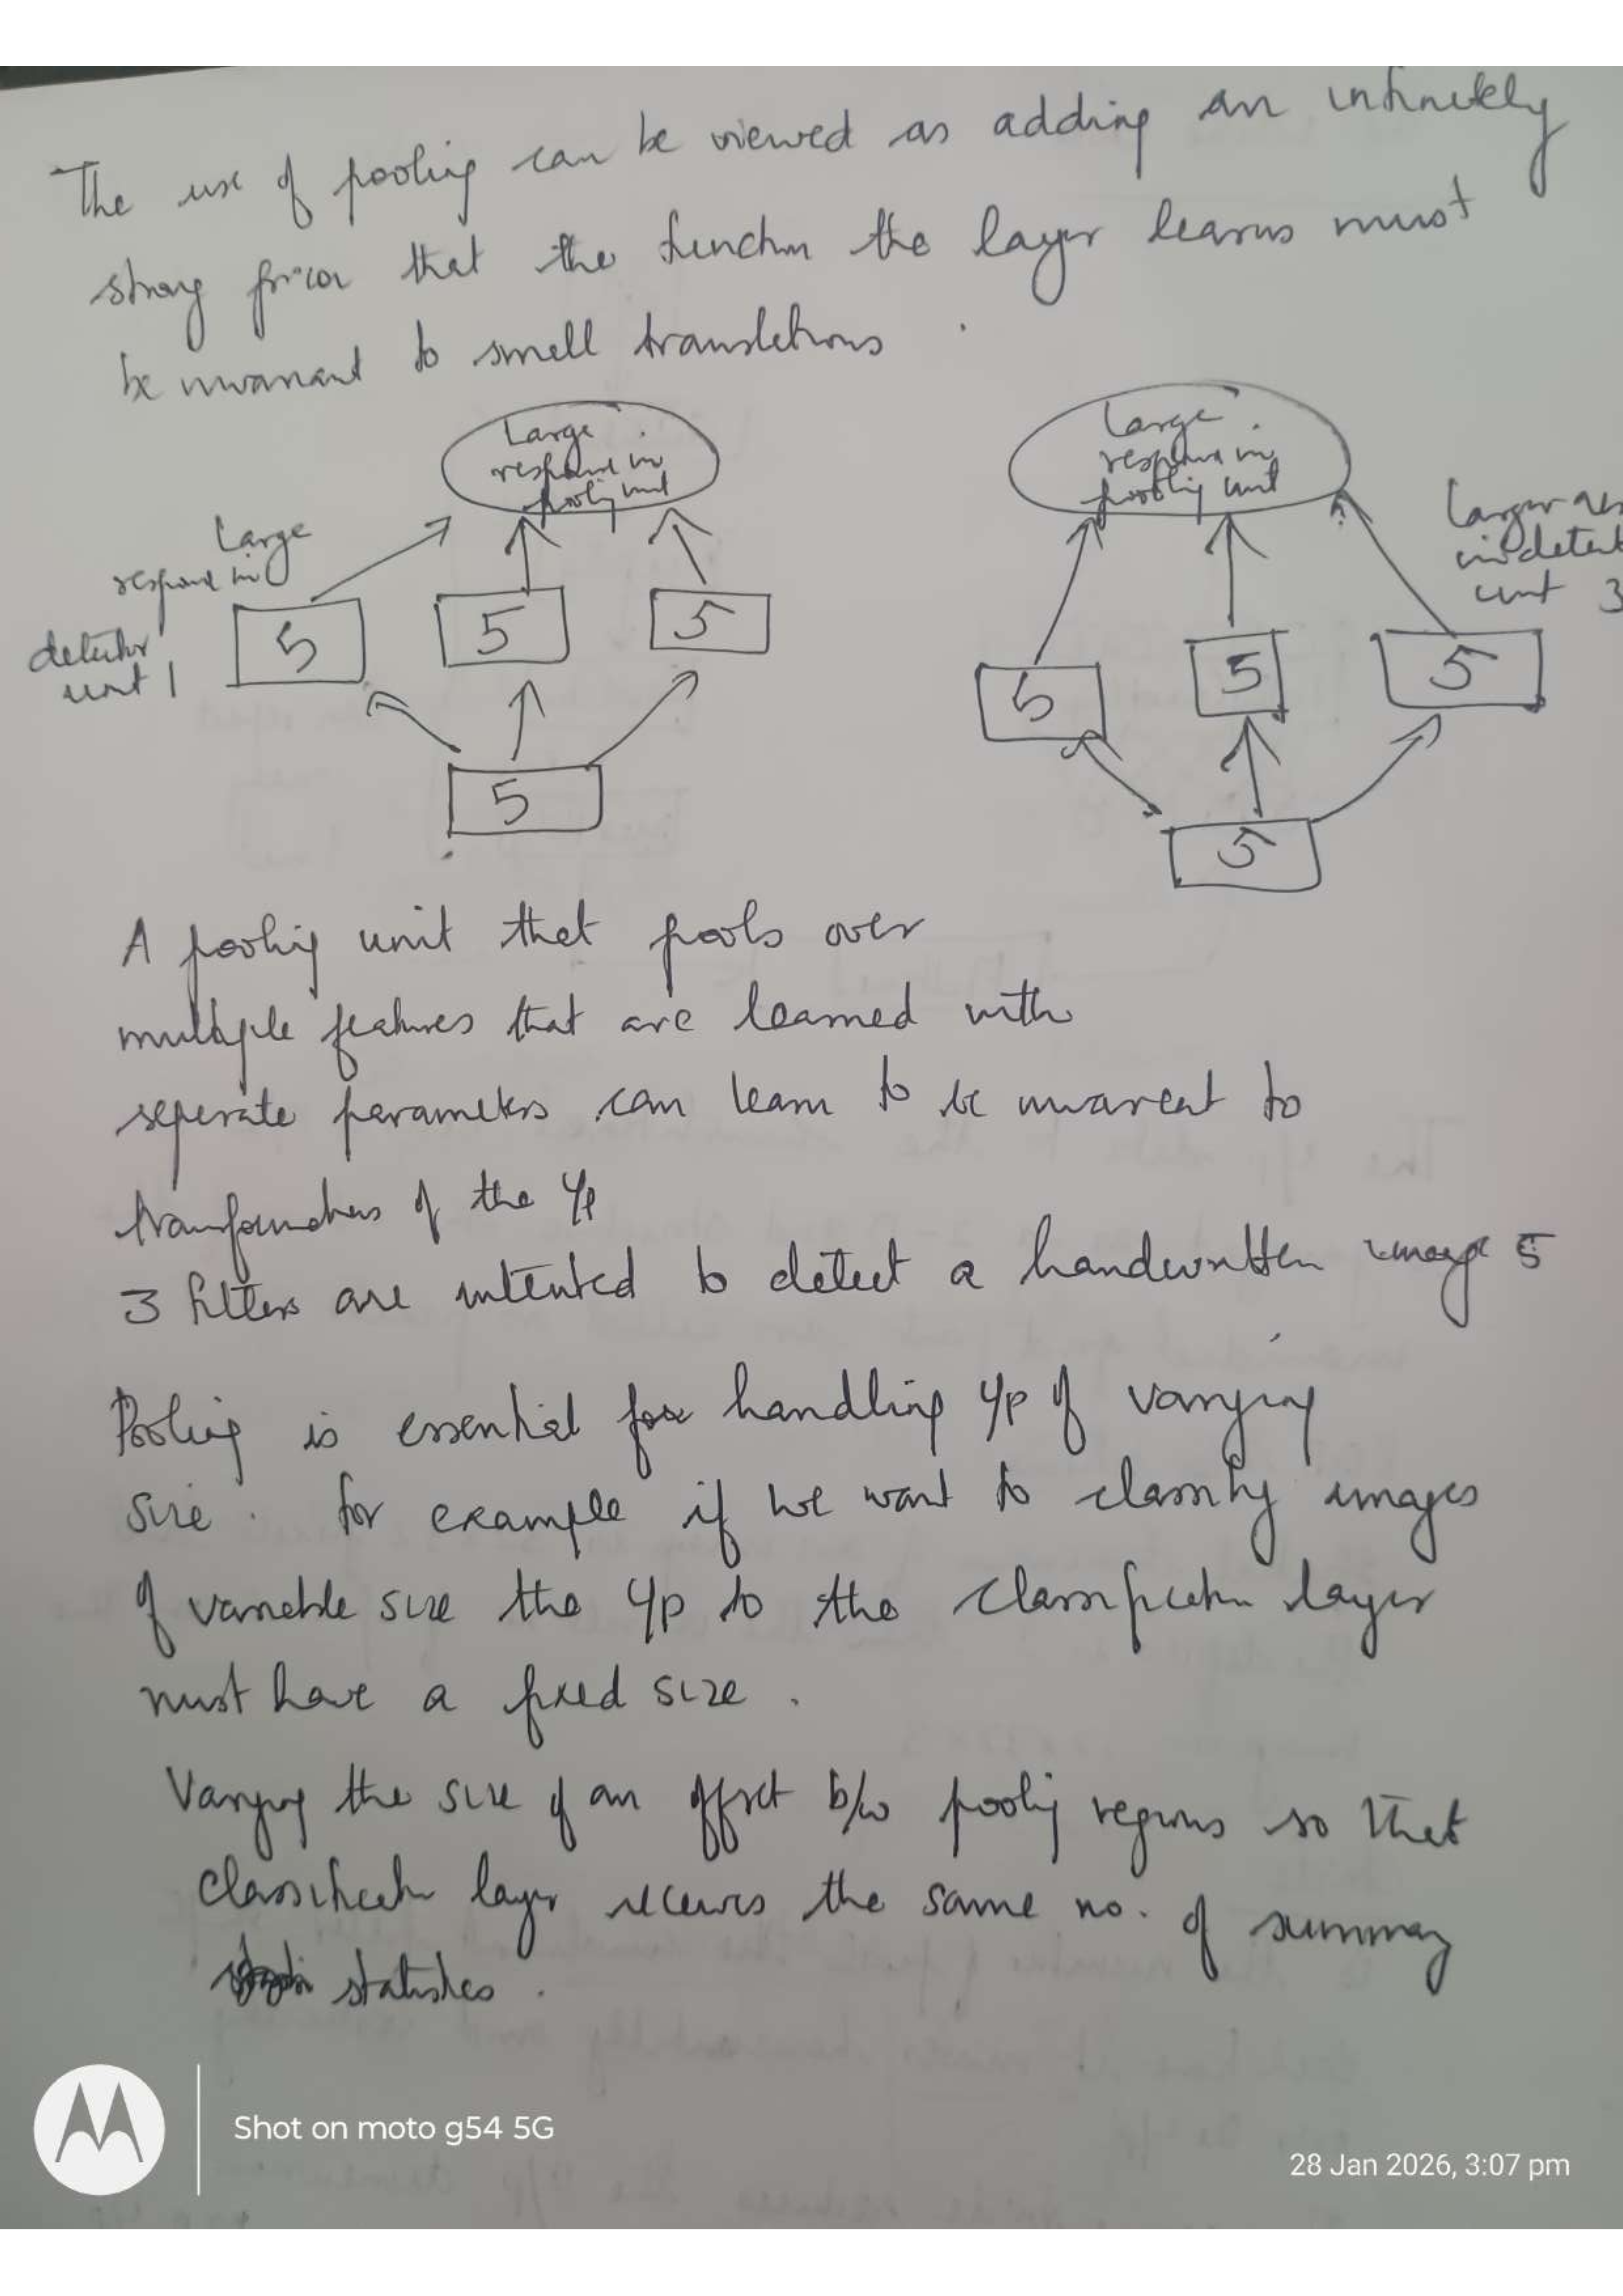 The use of pooling can be viewed as adding an infinitely
strong prior that the function the layer learns must
be invariant to small translations.
Large
respond in
pooling unit
Large
respond in
detector
unit 1
5 5 5
5
Large
response in
pooling unit
Larger res
in detect
unit 3
5 5 5
5
A pooling unit that pools over
multiple features that are learned with
seperate parameters can learn to be invareat to
transformations of the i/p
3 filters are intented to detect a handwritten image 5
Pooling is essential for handling i/p of varying
size. for example if we want to classify images
of variable size the i/p to the classification layer
must have a fixed size.
Varying the size of an offset b/w pooling regions so that
classification layer receives the same no. of summary
statistics.
Shot on moto g54 5G
28 Jan 2026, 3:07 pm